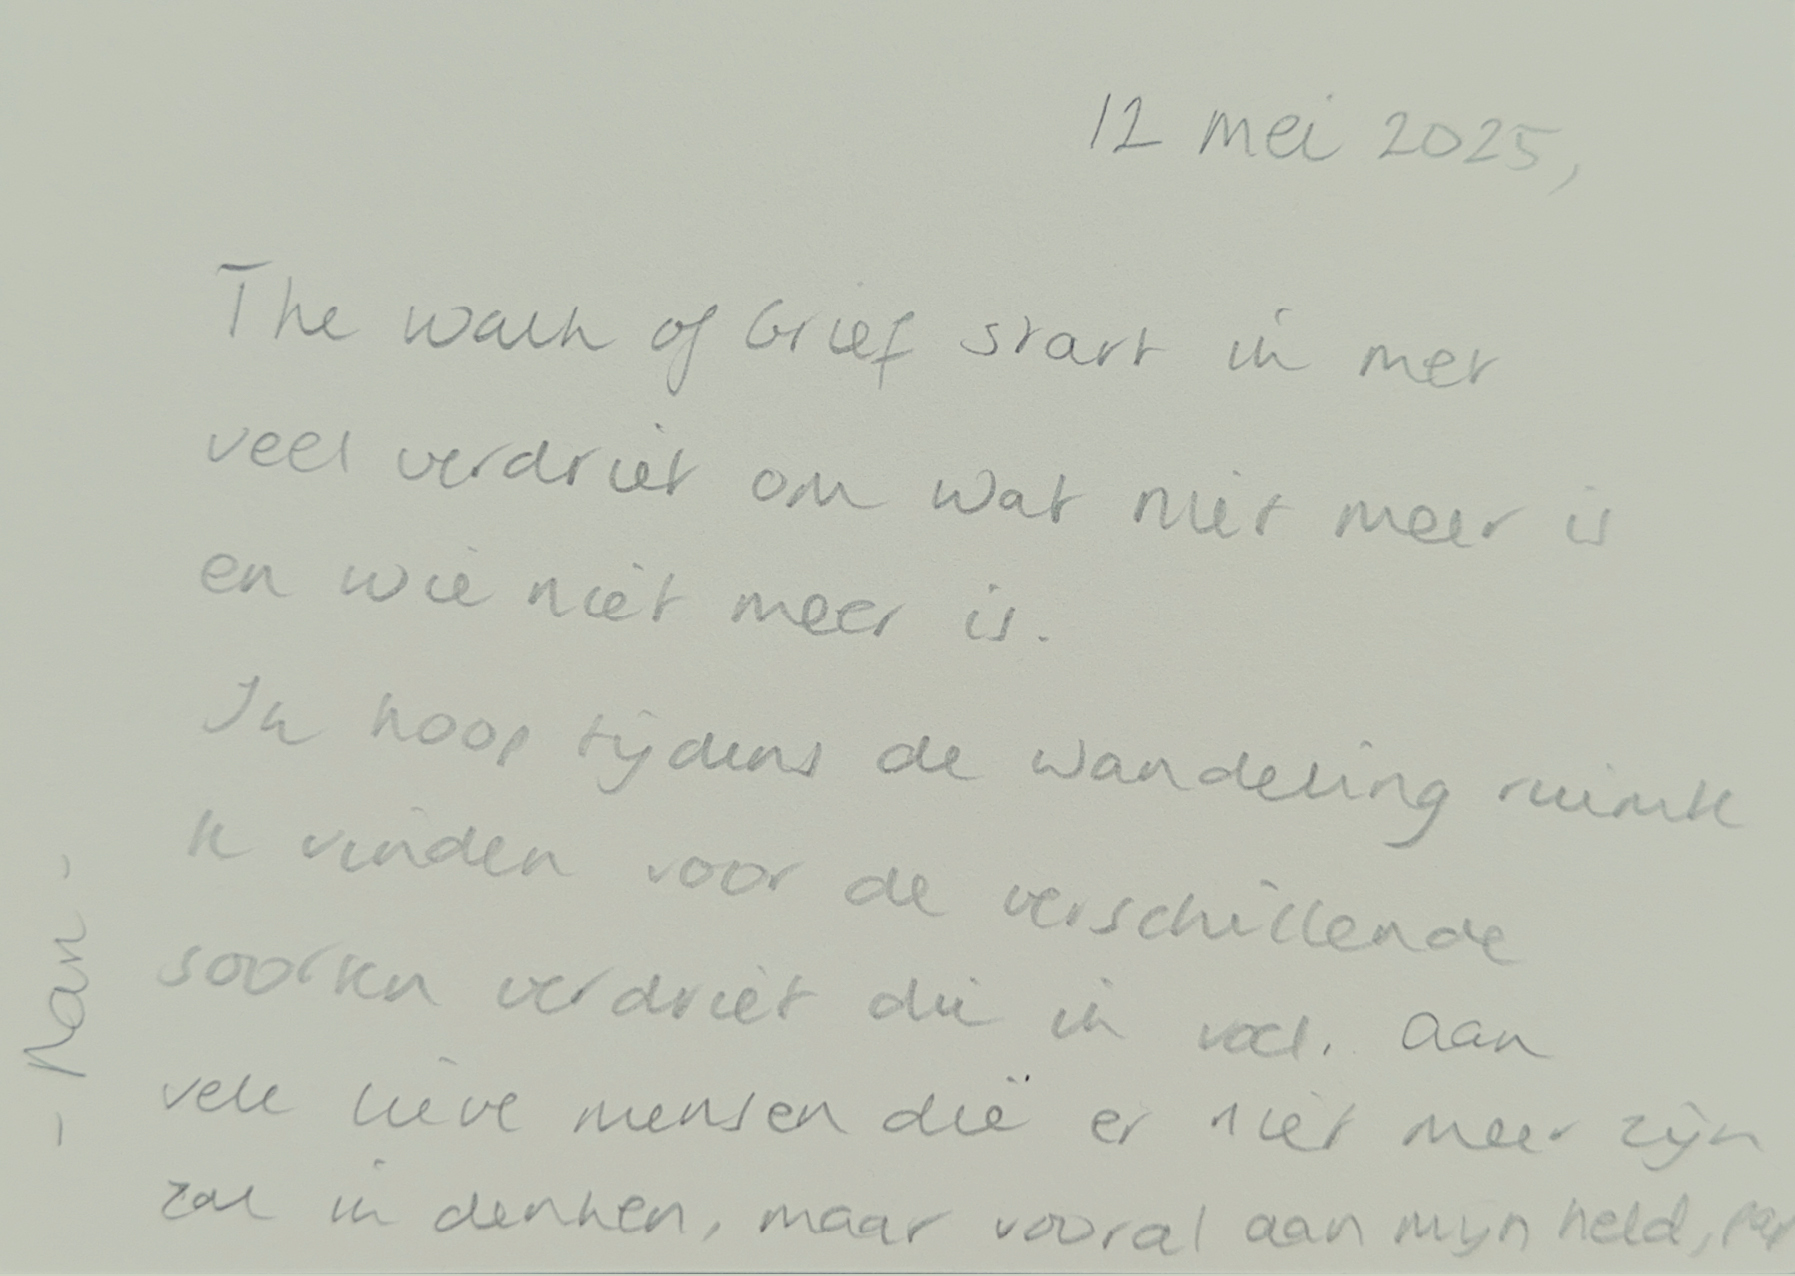 12 mei 2025,
The walk of Grief start ik met
veel verdriet om wat niet meer is
en wie niet meer is.
Ik hoop tijdens de wandeling ruimte
te vinden voor de verschillende
soorten verdriet die ik voel. Aan
vele lieve mensen die er niet meer zijn
zal ik denken, maar vooral aan mijn held, pap
- Nan -